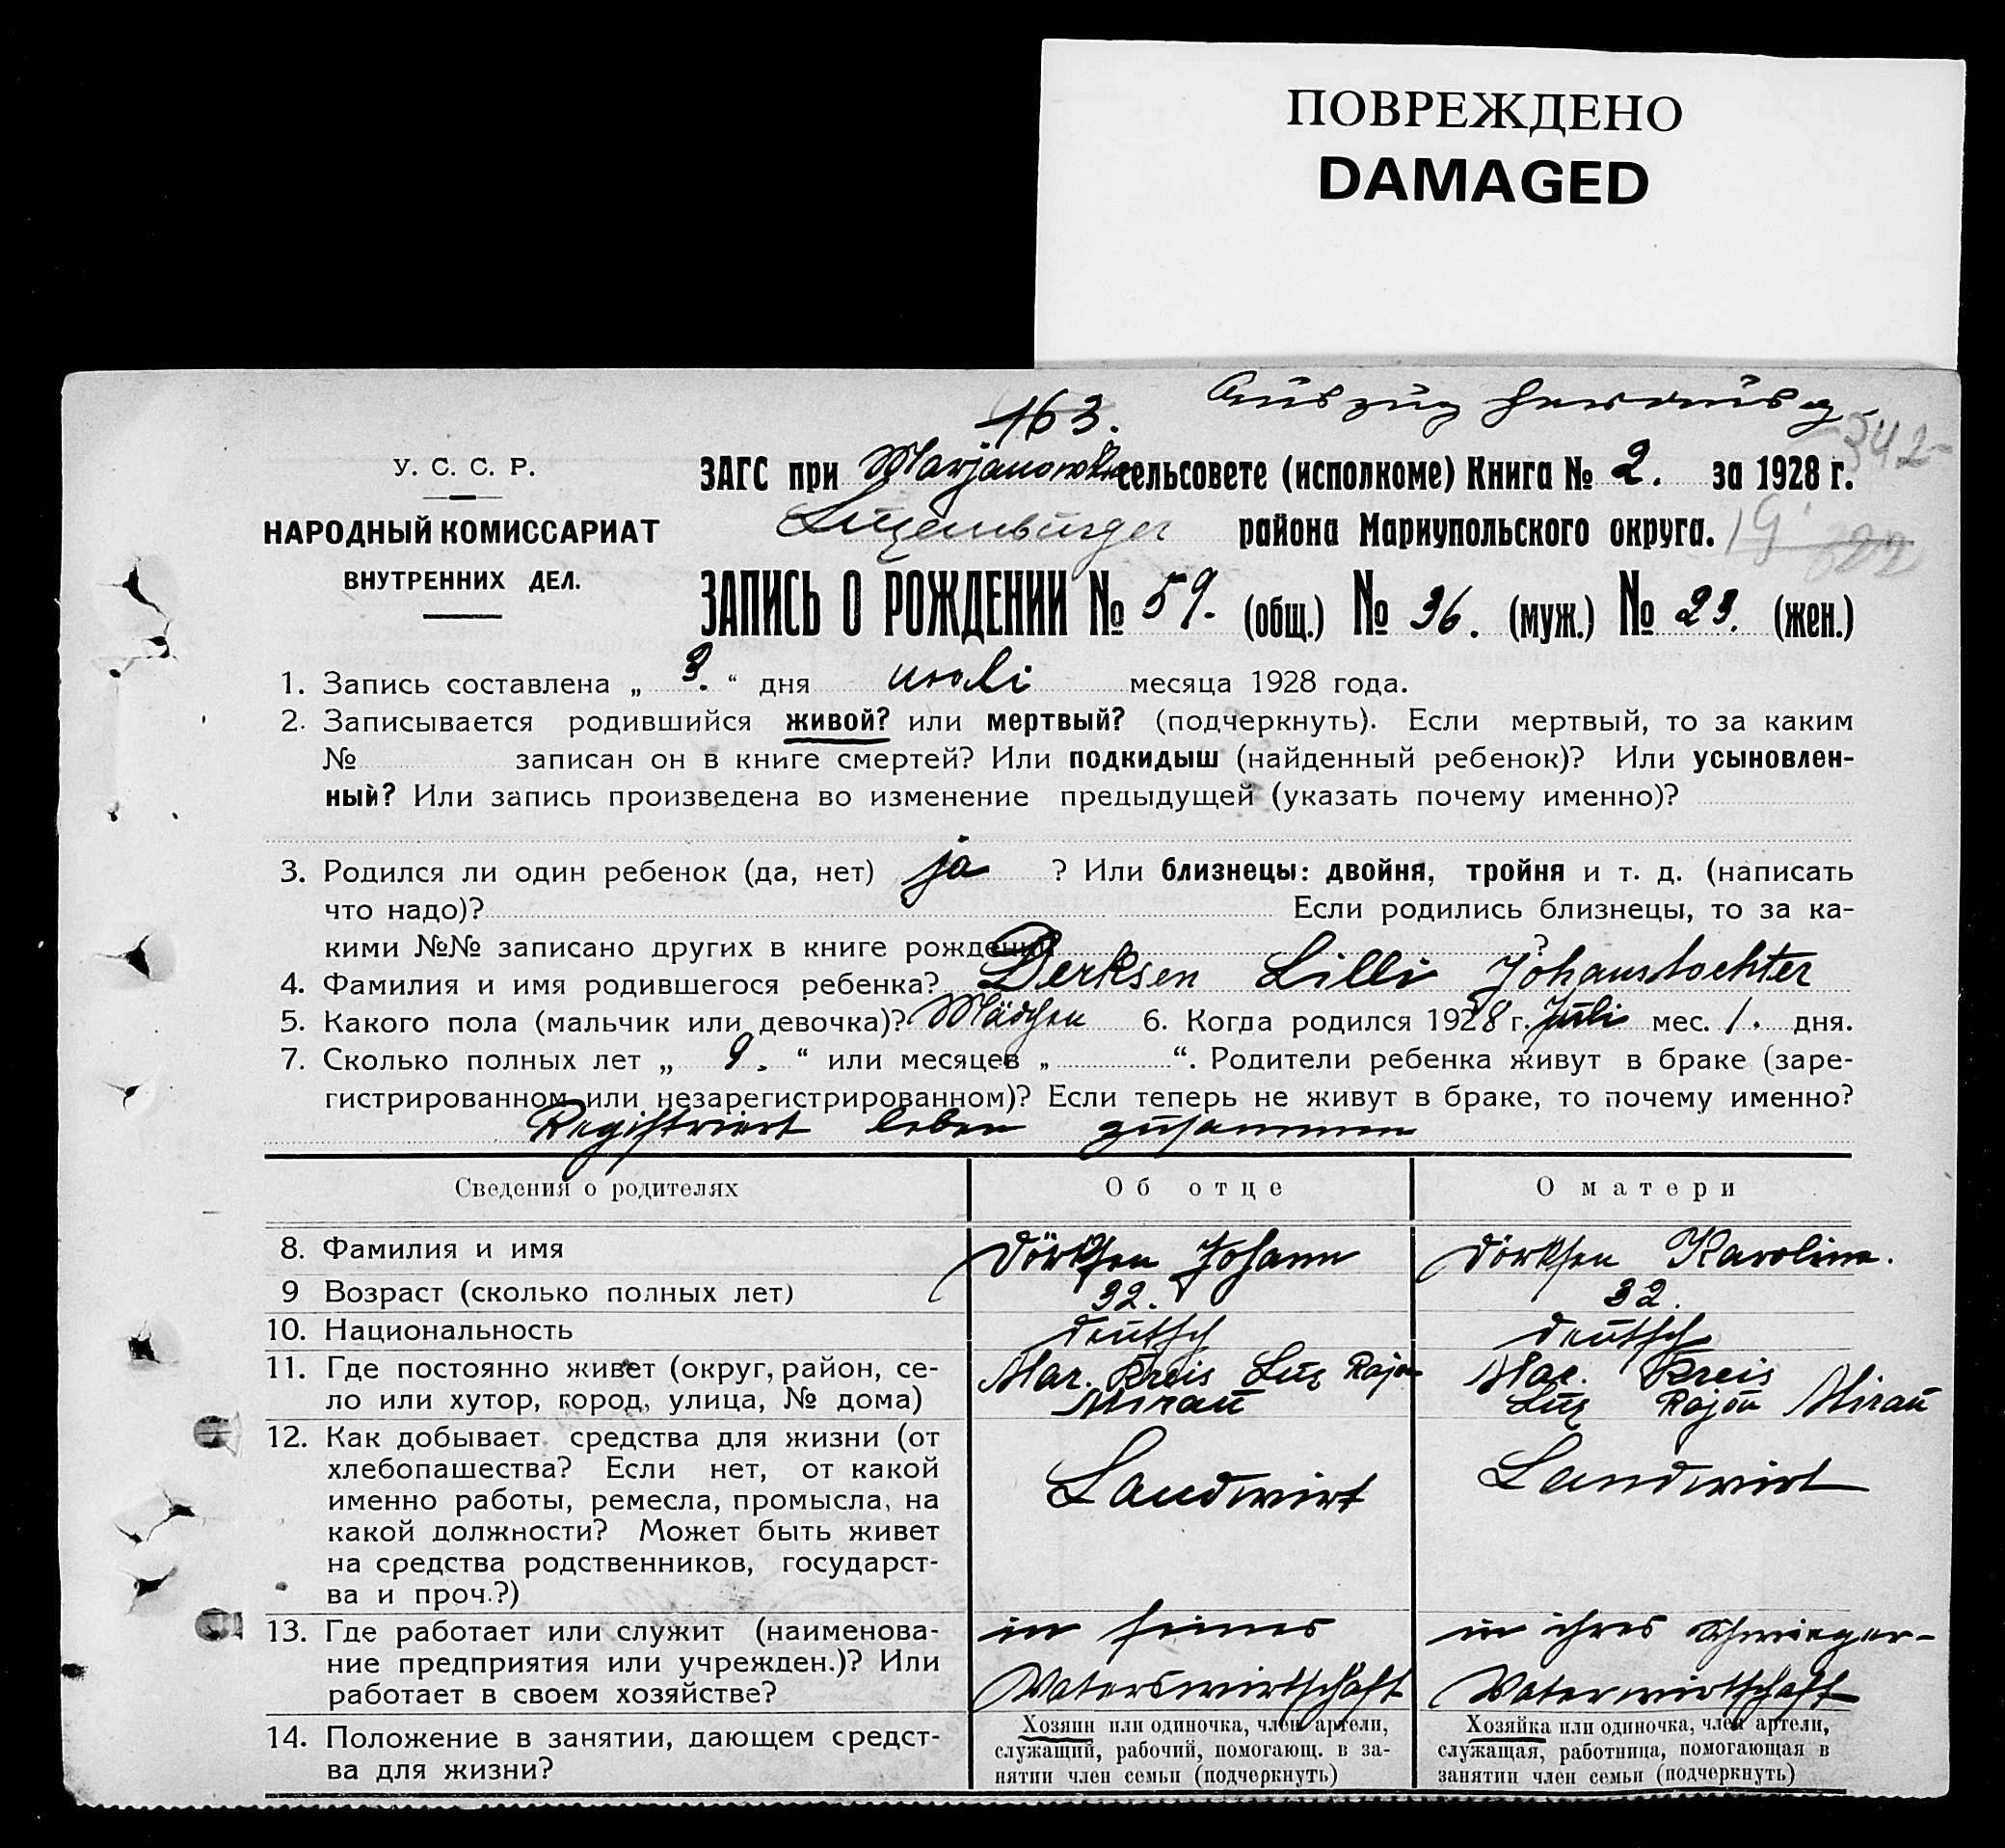 ПОВРЕЖДЕНО
DAMAGED
Auszug herausg.
163.
-342-
У. С. С. Р.
ЗАГС при Marjanowka сельсовете (исполкоме) Книга № 2. за 1928 г.
НАРОДНЫЙ КОМИССАРИАТ
Luxemburger района Мариупольского округа. 19
ВНУТРЕННИХ ДЕЛ.
ЗАПИСЬ О РОЖДЕНИИ № 59. (общ.) № 36. (муж.) № 23. (жен.)
1. Запись составлена „ 3. “ дня июli месяца 1928 года.
2. Записывается родившийся живой? или мертвый? (подчеркнуть). Если мертвый, то за каким
№ записан он в книге смертей? Или подкидыш (найденный ребенок)? Или усыновлен-
ный? Или запись произведена во изменение предыдущей (указать почему именно)?
3. Родился ли один ребенок (да, нет) ja ? Или близнецы: двойня, тройня и т. д. (написать
что надо)? Если родились близнецы, то за ка-
кими №№ записано других в книге рождений ?
4. Фамилия и имя родившегося ребенка? Derksen Lilli Johanstochter
5. Какого пола (мальчик или девочка)? Mädchen 6. Когда родился 1928 г. Juli мес. 1. дня.
7. Сколько полных лет „ 9. “ или месяцев „ “. Родители ребенка живут в браке (заре-
гистрированном или незарегистрированном)? Если теперь не живут в браке, то почему именно?
Registriert leben zusammen
Сведения о родителях Об отце О матери
8. Фамилия и имя Dörksen Johann Dörksen Karolina.
9 Возраст (сколько полных лет) 32. 32.
10. Национальность deutsch deutsch
11. Где постоянно живет (округ, район, се- Mar. Kreis Lux Rajon Mar. Kreis
ло или хутор, город, улица, № дома) Mirau Lux Rajon Mirau
12. Как добывает средства для жизни (от
хлебопашества? Если нет, от какой
именно работы, ремесла, промысла, на Landwirt Landwirt
какой должности? Может быть живет
на средства родственников, государст-
ва и проч.?)
13. Где работает или служит (наименова- in seines in ihres Schwieger-
ние предприятия или учрежден.)? Или
работает в своем хозяйстве? Vaterswirtschaft Vaterwirtschaft
14. Положение в занятии, дающем средст-
ва для жизни?
Хозяин или одиночка, член артели,
служащий, рабочий, помогающ. в за-
нятии член семьи (подчеркнуть)
Хозяйка или одиночка, член артели,
служащая, работница, помогающая в
занятии член семьи (подчеркнуть)